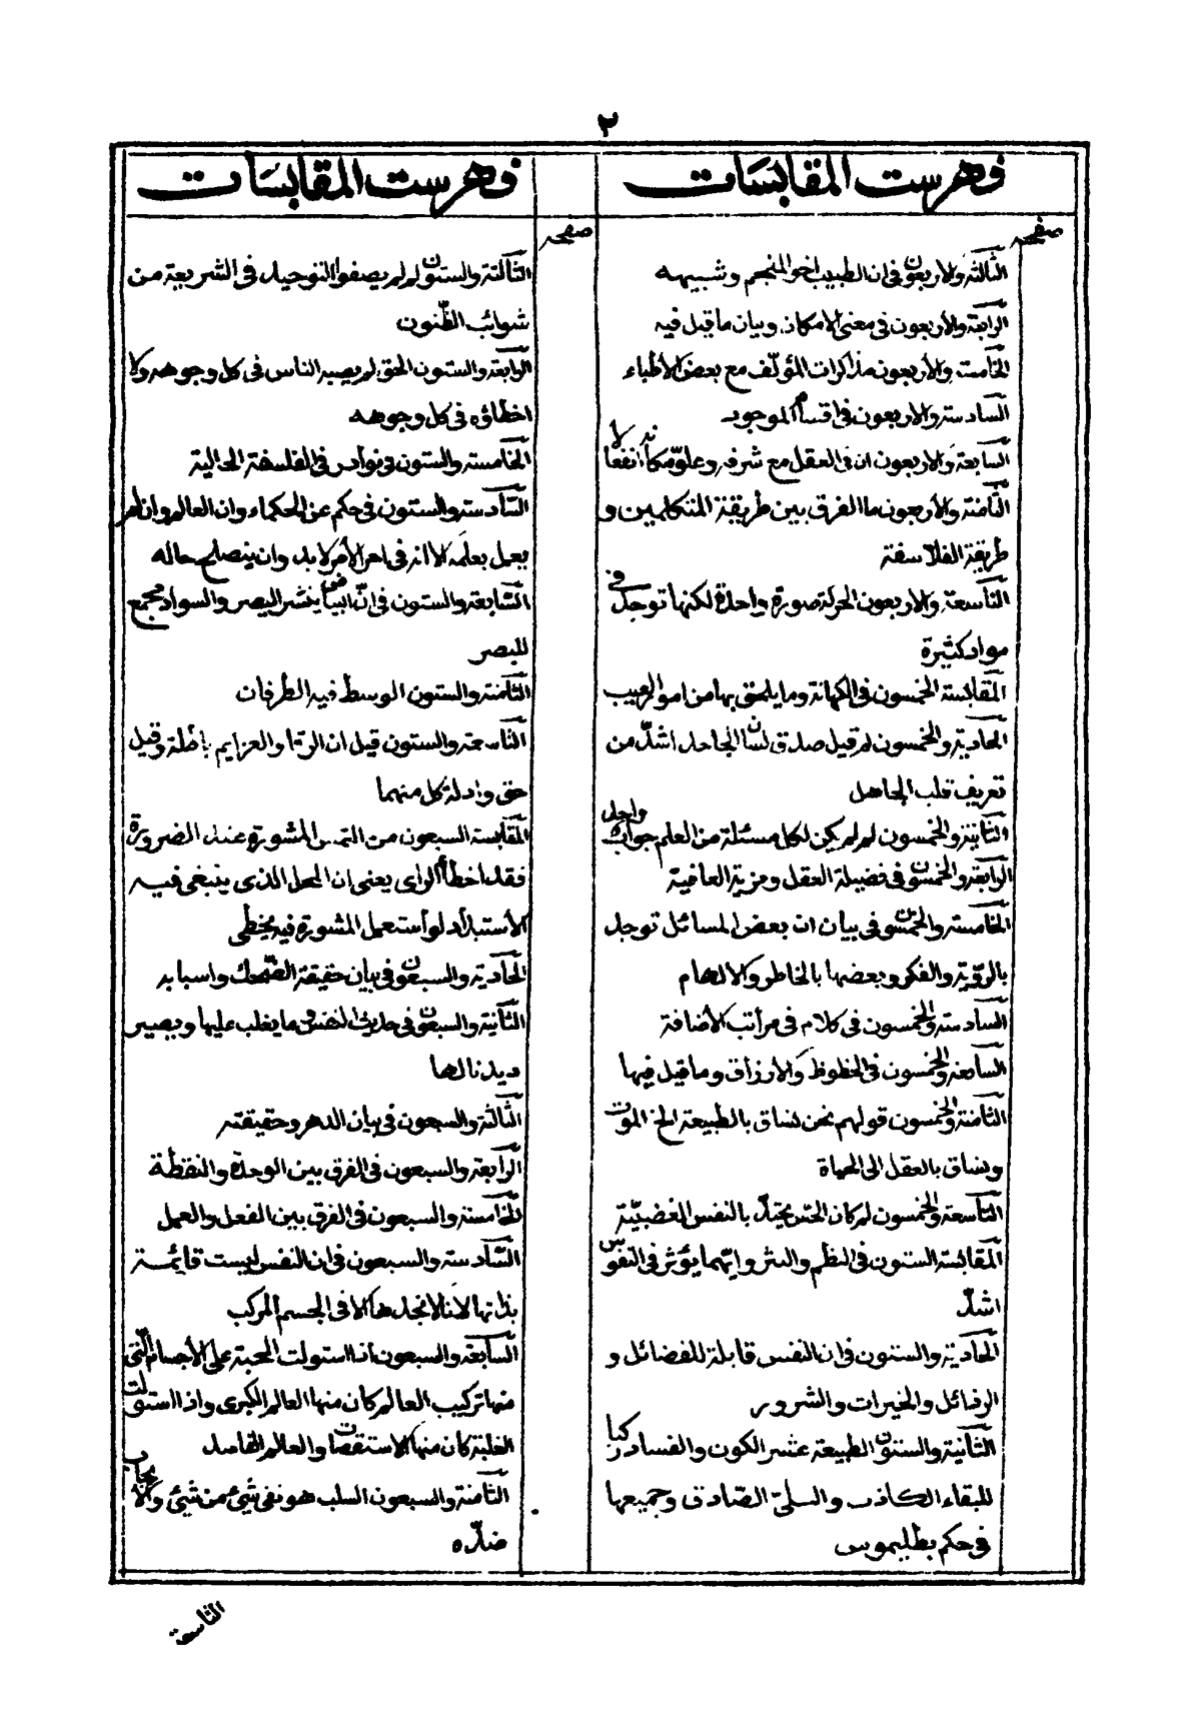 ٢
فهرست المقابسات
صفحه
الثالثة والاربعون في ان الطبيب اخو المنجم وشبيهه
الرابعة والأربعون في معنى الامكان وبيان ما قيل فيه
الخامسة والأربعون مذاكرات المؤلّف مع بعض الأطباء
السادسة والاربعون في اقسام الموجود
السابعة والاربعون ان في العقل مع شرفه وعلوّ مكانه انفعالا
الثامنة والأربعون ما الفرق بين طريقة المتكلمين و
طريقة الفلاسفة
التاسعة والاربعون الحركة صورة واحدة لكنها توجد في
مواد كثيرة
المقابسة الخمسون في الكهانة وما يلحق بها من امور الغيب
الحادية والخمسون لم قيل صدق لسان الجاهل اشدّ من
تعريف قلب الجاهل
الثانية والخمسون لم لم يكن لكل مسئلة من العلم جواب واحد
الرابعة والخمسون في فضيلة العقل ومزية العافية
الخامسة والخمسون في بيان ان بعض المسائل توجد
بالرّوية والفكر وبعضها بالخاطر والالهام
السادسة والخمسون في كلام في مراتب الأضافة
السابعة والخمسون في الحظوظ والارزاق وما قيل فيها
الثامنة والخمسون قولهم نحن نساق بالطبيعة الى الموت
ونساق بالعقل الى الحياة
التاسعة والخمسون لم كان الحس يحتدّ بالنفس الغضبيّة
المقابسة الستون في النظم والنثر وايّهما يؤثر في النفوس
اشدّ
الحادية والستون في ان النفس قابلة للفضائل و
الرذائل والخيرات والشرور
الثانية والستون الطبيعة عشر الكون والفساد
للبقاء الكاذب والسلى الصّادق وجميعها
في حكم بطليموس
فهرست المقابسات
صفحه
الثالثة والستون لم لم يصفوا التوحيد في الشريعة من
شوائب الظّنون
الرابعة والستون الحق لم يصبه الناس في كل وجوهه ولا
اخطاؤه في كل وجوهه
الخامسة والستون في نوادر في الفلسفة العالية
السّادسة والستون في حكم عن الحكماء وان العالم وان لم
يعمل بعلمه الا انه في اخر الأمر لا بد وان ينصلح حاله
السّابعة والستون في انّ البياض ينشر البصر والسواد مجمع
للبصر
الثامنة والستون الوسط فيه الطرفان
التاسعة والستون قيل ان الرقا والعزايم باطلة وقيل
حق وادلة كل منهما
المقابسة السبعون من التمس المشورة عند الضرورة
فقد اخطأ الراى يعنى ان المحل الذى ينبغى فيه
الأستبداد لو أستعمل المشورة فيه يخطى
الحادية والسبعون في بيان حقيقة الضّحك واسبابه
الثّانية والسبعون في حديث النفس وما يغلب عليها ويصير
ديدنا لها
الثالثة والسبعون في بيان الدهر وحقيقته
الرابعة والسبعون في الفرق بين الوحدة والنقطة
الخامسة والسبعون في الفرق بين الفعل والعمل
السّادسة والسبعون في ان النفس ليست قائمة
بذاتها لأنا لا نجدها الا في الجسم المركب
السابعة والسبعون اذا استولت المحبة على الأجسام الّتى
منها تركيب العالم كان منها العالم الكبرى واذا استولت
الغلبة كان منها الاستقصات والعالم الفاسد
الثامنة والسبعون السلب هو نفى شيئ من شيئ والأيجاب
ضدّه
التاسعة